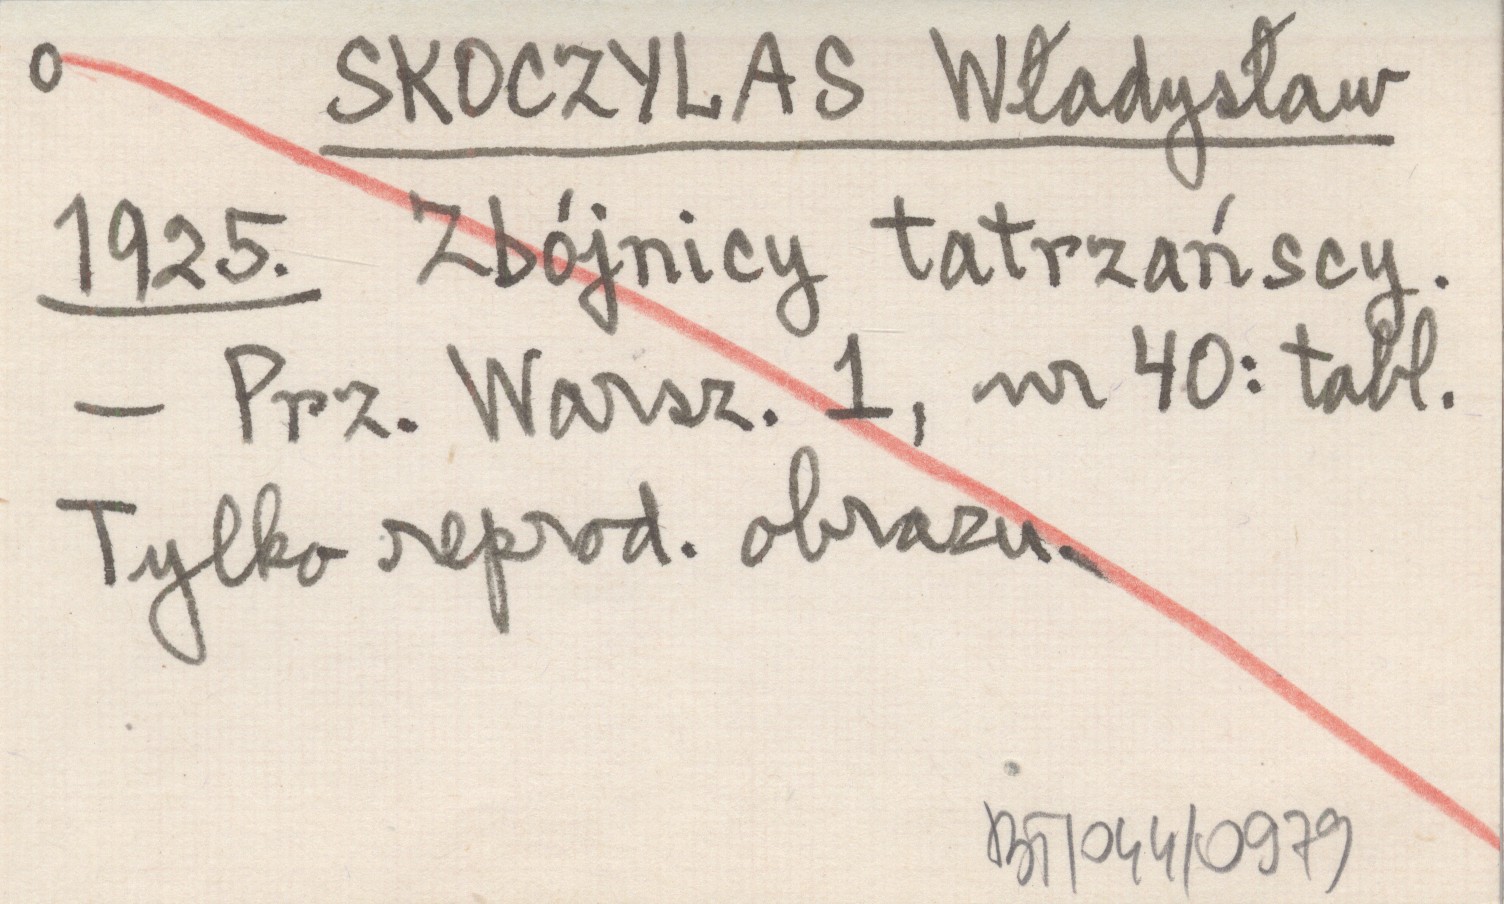 o SKOCZYLAS Władysław
1925. Zbójnicy tatrzańscy.
— Prz. Warsz. 1, nr 40: tabl.
Tylko reprod. obrazu.
BT/044/0979